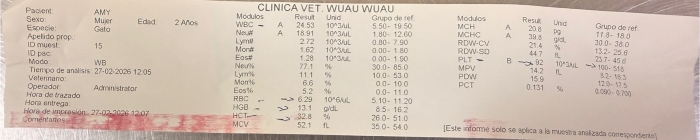 CLINICA VET. WUAU WUAU
Pacient. AMY
Sexo: Mujer Edad: 2 Años
Especie: Gato
Apellido prop.
ID muest. 15
ID pac.
Modo: WB
Tiempo de análisis: 27-02-2026 12:05
Veterinario:
Operador: Administrator
Hora de trazado
Hora entrega:
Hora de impresión: 27-02-2026 12:07
Comentarios:
Modulos Result Unid Grupo de ref.
WBC A 24.53 10^3/uL 5.50- 19.50
Neu# A 18.91 10^3/uL 1.80- 12.60
Lym# 2.72 10^3/uL 0.80- 7.90
Mon# 1.62 10^3/uL 0.00- 1.80
Eos# 1.28 10^3/uL 0.00- 1.90
Neu% 77.1 % 30.0- 85.0
Lym% 11.1 % 10.0- 53.0
Mon% 6.6 % 0.0- 10.0
Eos% 5.2 % 0.0- 11.0
RBC 6.29 10^6/uL 5.10- 11.20
HGB 13.1 g/dL 8.5- 16.2
HCT 32.8 % 26.0- 51.0
MCV 52.1 fL 35.0- 54.0
Modulos Result Unid Grupo de ref.
MCH A 20.8 pg 11.8- 18.0
MCHC A 39.8 g/dL 30.0- 38.0
RDW-CV 21.4 % 13.2- 25.6
RDW-SD 44.7 fL
PLT B 92 10^3/uL 100- 518
MPV 14.2 fL
PDW 15.9
PCT 0.131 %
[Este informe solo se aplica a la muestra analizada correspondiente]